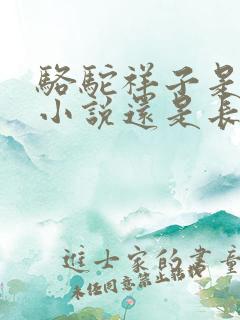 駱駝祥子是
小說還是長
進士家的書童
未經同意禁止轉載